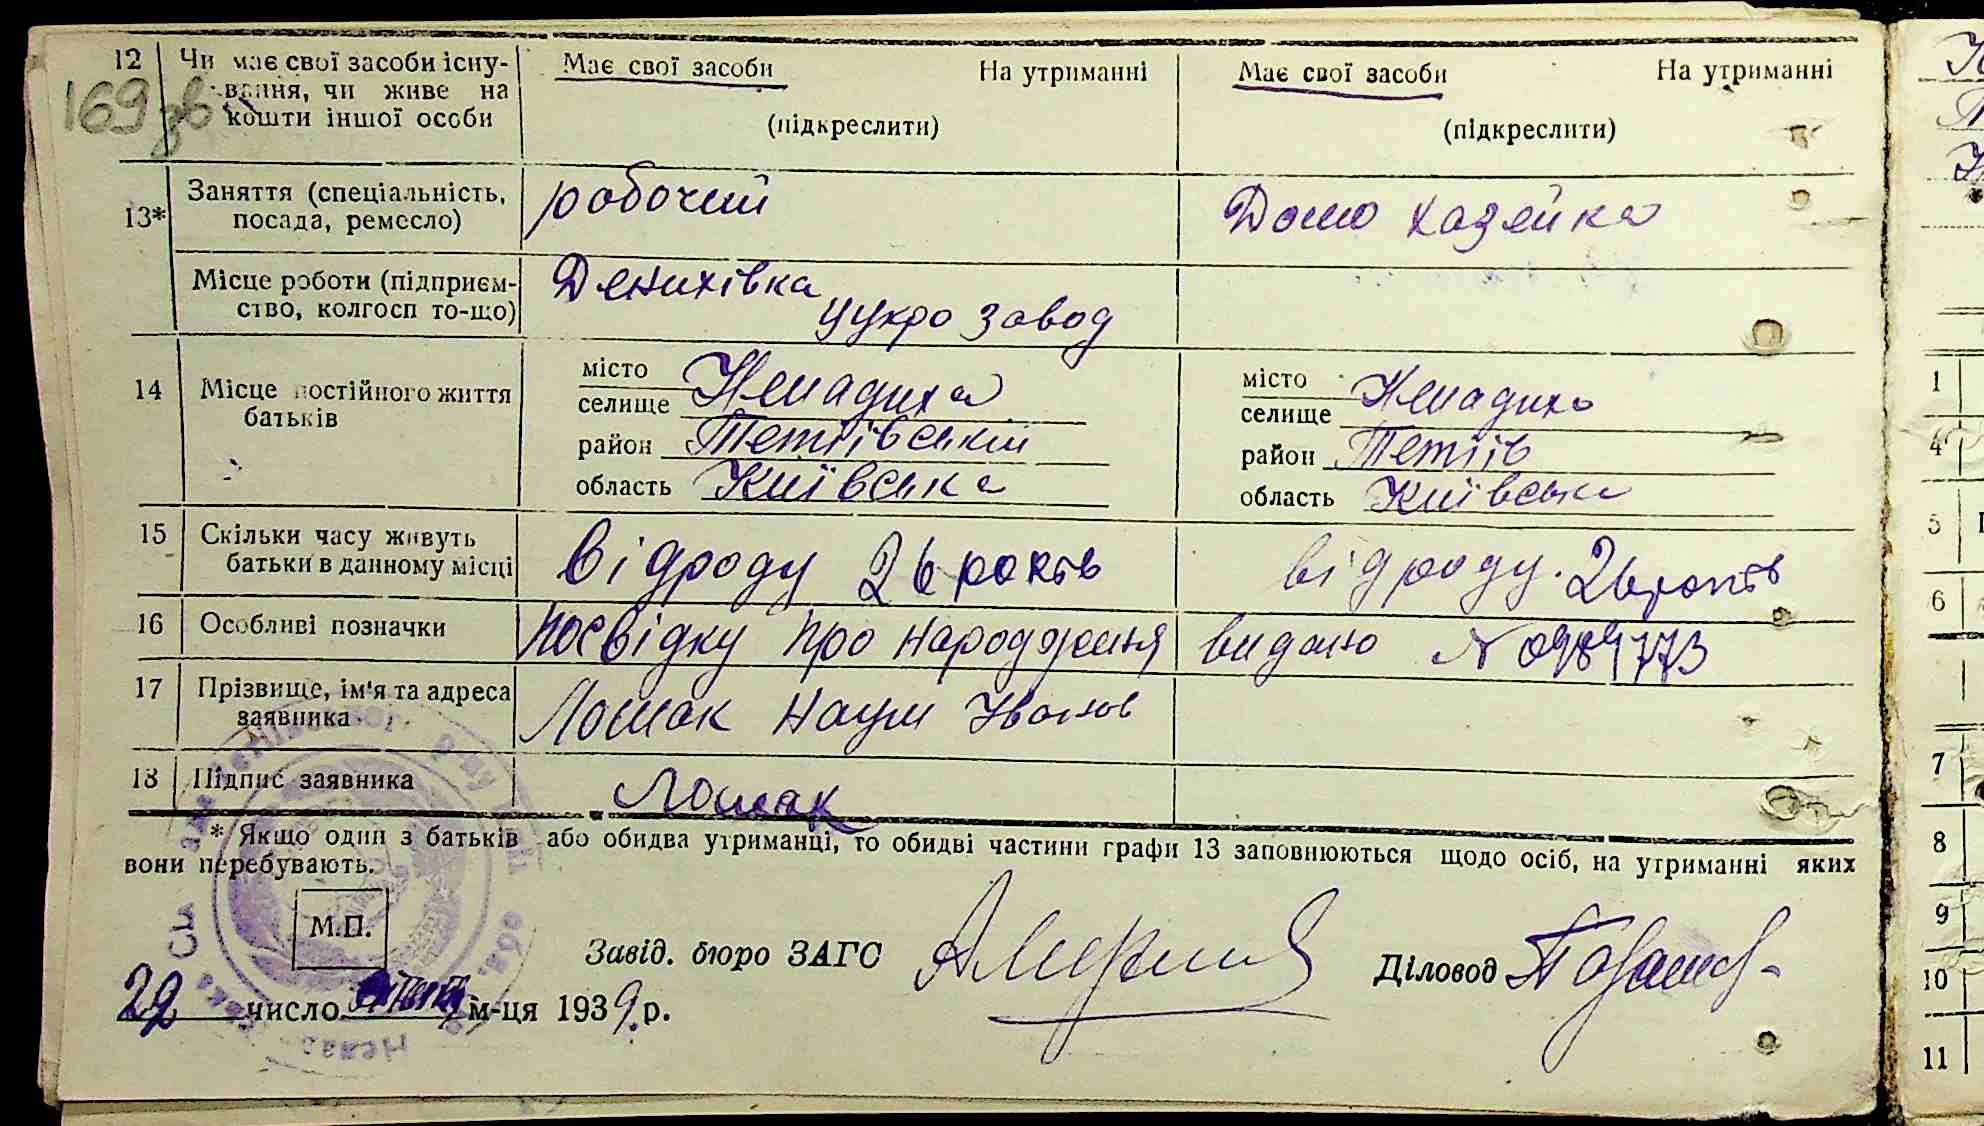 169 зв
12 Чи має свої засоби існу-
вання, чи живе на
кошти іншої особи
Має свої засоби На утриманні
(підкреслити)
Має свої засоби На утриманні
(підкреслити)
13* Заняття (спеціальність,
посада, ремесло)
робочий
Домо хазяйка
Місце роботи (підприєм-
ство, колгосп то-що)
Денихівка
цукро завод
14 Місце постійного життя
батьків
місто
селище Ненадиха
район Тетіївський
область Київська
місто
селище Ненадиха
район Тетіїв
область Київська
15 Скільки часу живуть
батьки в данному місці
відроду 26 років
відроду. 26 років
16 Особливі позначки
посвідку про народження видано N 0989773
17 Прізвище, ім'я та адреса
заявника
Лошак Наум Іванов
18 Підпис заявника
Лошак
* Якщо один з батьків або обидва утриманці, то обидві частини графи 13 заповнюються щодо осіб, на утриманні яких
вони перебувають.
М.П.
Завід. бюро ЗАГС
Діловод
29 число м-ця 1939 р.
1
4
5
6
7
8
9
10
11